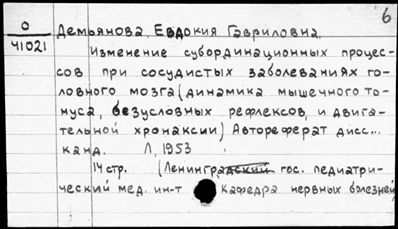 6
О
41021
Демьянова, Евдокия Гавриловна.
Изменение субординационных процес-
сов при сосудистых заболеваниях го-
ловного мозга (динамика мышечного то-
нуса, безусловных рефлексов, и двига-
тельной хронаксии) Автореферат дисс...
канд. Л, 1953
14 стр. (Ленинградский гос. педиатри-
ческий мед. ин-т Кафедра нервных болезней